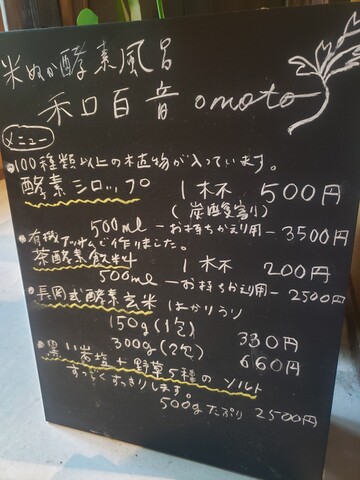 米ぬか酵素風呂
和口百音 omoto
メニュー
・100種類以上の植物が入っています。
酵素シロップ 1杯 500円
(炭酸割り)
500ml −お持ちかえり用− 3500円
・有機アッサムで作りました。
茶酵素飲料 1杯 200円
500ml −お持ちかえり用− 2500円
・長岡式酵素玄米 はかりうり
150g(1包) 330円
300g(2包) 660円
・黒い岩塩+野草5種のソルト
すっごくすっきりします。
500gたっぷり 2500円